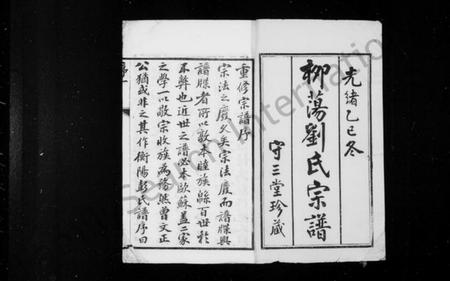 光緒乙巳冬
柳蕩劉氏宗譜
守三堂珍藏
重修宗譜序
宗法之廢久矣宗法廢而譜牒興
譜牒者所以敬本睦族緜百世於
不弊也近世之譜必本歐蘇蓋二家
之學一以敬宗收族為務然曾文正
公猶或非之其作衡陽彭氏譜序曰